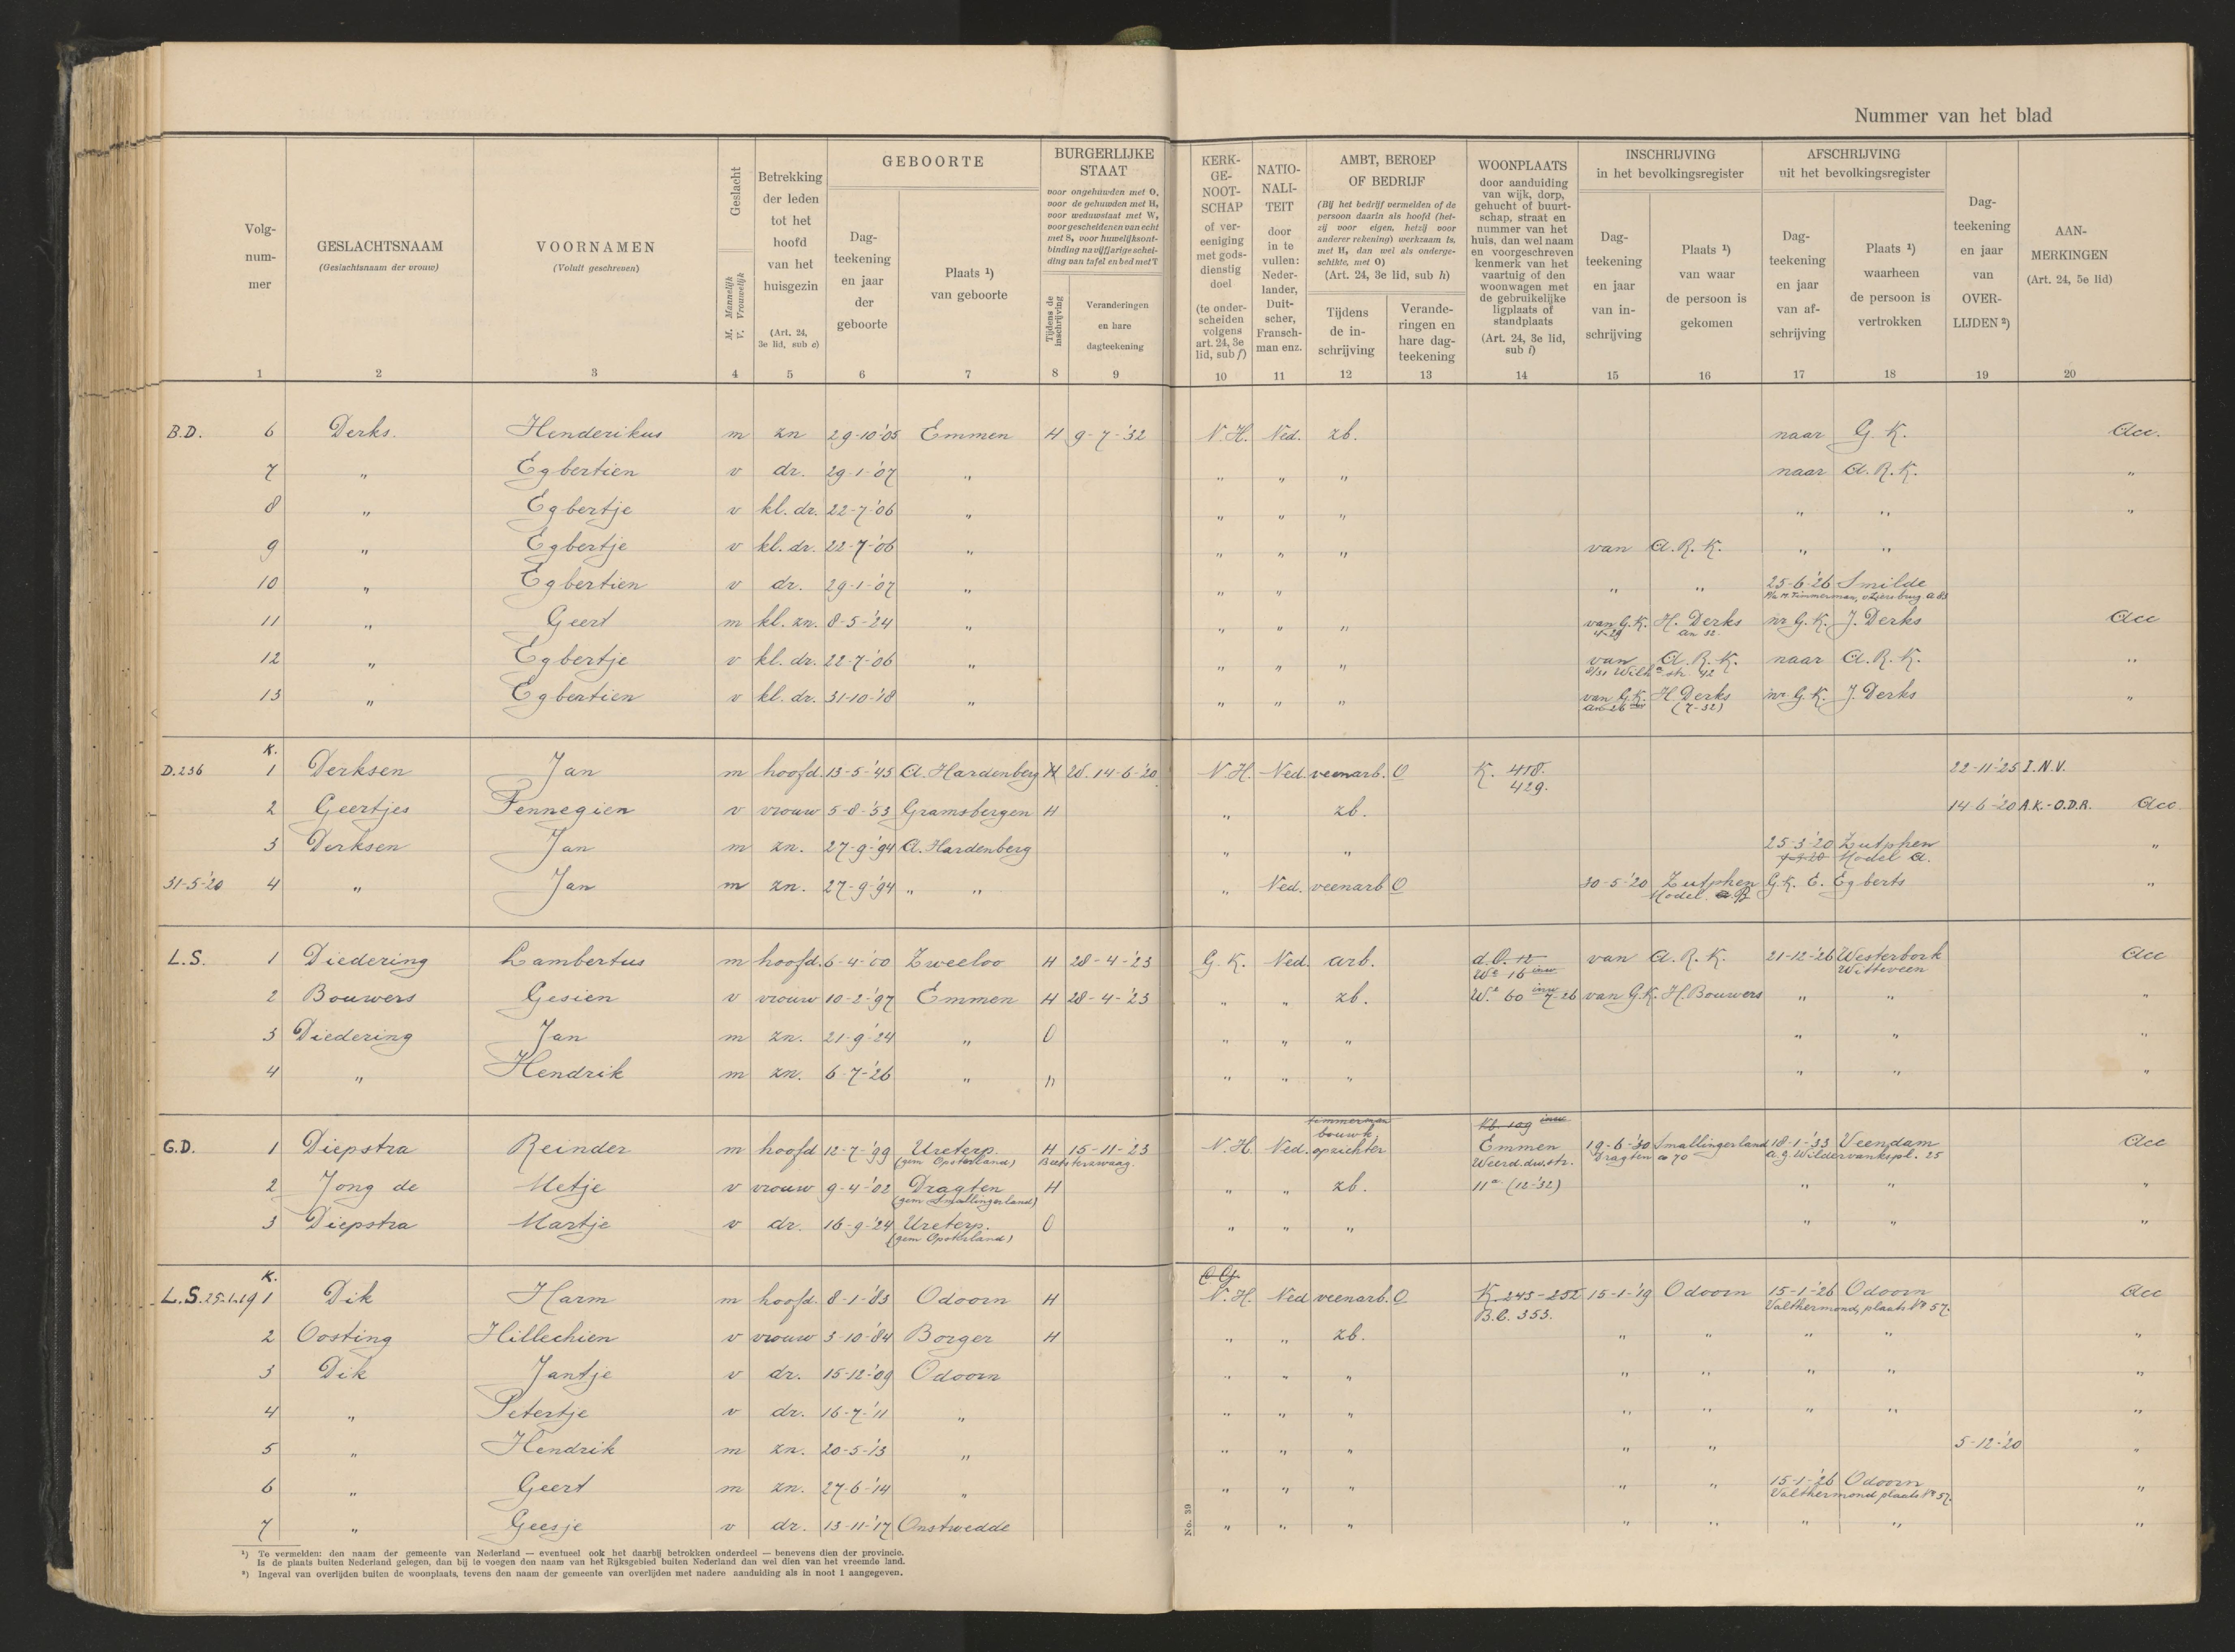 Nummer van het blad
Volg-
num-
mer
GESLACHTSNAAM
(Geslachtsnaam der vrouw)
VOORNAMEN
(Voluit geschreven)
Geslacht
M. Mannelijk
V. Vrouwelijk
Betrekking
der leden
tot het
hoofd
van het
huisgezin
(Art. 24,
3e lid, sub c)
GEBOORTE
Dag-
teekening
en jaar
der
geboorte
Plaats ¹)
van geboorte
BURGERLIJKE
STAAT
voor ongehuwden met O,
voor de gehuwden met H,
voor weduwstaat met W,
voor gescheidenen van echt
met S, voor huwelijksont-
binding na vijfjarige schei-
ding van tafel en bed met T
Tijdens de
inschrijving
Veranderingen
en hare
dagteekening
KERK-
GE-
NOOT-
SCHAP
of ver-
eeniging
met gods-
dienstig
doel
(te onder-
scheiden
volgens
art. 24, 3e
lid, sub f)
NATIO-
NALI-
TEIT
door
in te
vullen:
Neder-
lander,
Duit-
scher,
Fransch-
man enz.
AMBT, BEROEP
OF BEDRIJF
(Bij het bedrijf vermelden of de
persoon daarin als hoofd (het-
zij voor eigen, hetzij voor
anderer rekening) werkzaam is,
met H, dan wel als onderge-
schikte, met O)
(Art. 24, 3e lid, sub h)
Tijdens
de in-
schrijving
Verande-
ringen en
hare dag-
teekening
WOONPLAATS
door aanduiding
van wijk, dorp,
gehucht of buurt-
schap, straat en
nummer van het
huis, dan wel naam
en voorgeschreven
kenmerk van het
vaartuig of den
woonwagen met
de gebruikelijke
ligplaats of
standplaats
(Art. 24, 3e lid,
sub i)
INSCHRIJVING
in het bevolkingsregister
Dag-
teekening
en jaar
van in-
schrijving
Plaats ¹)
van waar
de persoon is
gekomen
AFSCHRIJVING
uit het bevolkingsregister
Dag-
teekening
en jaar
van af-
schrijving
Plaats ¹)
waarheen
de persoon is
vertrokken
Dag-
teekening
en jaar
van
OVER-
LIJDEN ²)
AAN-
MERKINGEN
(Art. 24, 5e lid)
1 2 3 4 5 6 7 8 9 10 11 12 13 14 15 16 17 18 19 20
B.D. 6 Derks. Henderikus m zn 29-10-'05 Emmen H 9-7-'32 N.H. Ned. zb. naar G.K. Acc.
7 " Egbertien v dr. 29-1-'07 " " " " naar A.R.K. "
8 " Egbertje v kl. dr. 22-7-'06 " " " " " " "
9 " Egbertje v kl. dr. 22-7-'06 " " " " van A.R.K. " "
10 " Egbertien v dr. 29-1-'07 " " " " " 25-6-'26 Smilde
11 " Geert m kl. zn. 8-5-'24 " " " " van G.K. H. Derks nr G.K. J. Derks Acc
4-29 an 32
12 " Egbertje v kl. dr. 22-7-'06 " " " " van A.R.K. naar A.R.K. "
8/31 Wilh.a str 42
13 " Egbertien v kl. dr. 31-10-'18 " " " " van G.K. H. Derks nr G.K. J. Derks "
(7-32)
K.
D.236 1 Derksen Jan m hoofd. 13-5-'45 A. Hardenberg H W. 14-6-'20 N.H. Ned. veenarb. O K. 418. 22-11-'25 I.N.V.
429.
2 Geertjes Fennegien v vrouw 5-8-'53 Gramsbergen H " zb. 14-6-'20 A.K.-O.D.R. Acc
3 Derksen Jan m zn. 27-9-'94 A. Hardenberg " " 25-3-'20 Zutphen "
Model A.
31-5-'20 4 " Jan m zn. 27-9-'94 " " " Ned. veenarb O 30-5-'20 Zutphen G.K. E. Egberts "
Model B
L.S. 1 Diedering Lambertus m hoofd. 6-4-'00 Zweeloo H 28-4-'23 G.K. Ned. arb. d.O. 12 van A.R.K. 21-12-'26 Westerbork Acc
W.e 16 inw Witteveen
2 Bouwers Gesien v vrouw 10-2-'97 Emmen H 28-4-'23 " " zb. W.e 60 inw 7-26 van G.K. H. Bouwers " " "
3 Diedering Jan m zn. 21-9-'24 " O " " " " " "
4 " Hendrik m zn. 6-7-'26 " " " " " " " "
timmerman Kb. 109 inw
bouwk.
G.D. 1 Diepstra Reinder m hoofd 12-7-'99 Ureterp. H 15-11-'23 N.H. Ned. opzichter Emmen 19-6-'30 Smallingerland 18-1-'33 Veendam Acc
(gem Opsterland) Beetsterzwaag. Weerd.dw.str. Dragten a 70 a.g. Wildervankspl. 25
2 Jong de Metje v vrouw 9-4-'02 Dragten H " " zb. 11a (12-'32) " " "
(gem Smallingerland)
3 Diepstra Martje v dr. 16-9-'24 Ureterp. O " " " " " "
(gem Opsterland)
K.
L.S. 25-1-19 1 Dik Harm m hoofd. 8-1-'83 Odoorn H N.H. Ned veenarb. O K 243-252 15-1-'19 Odoorn 15-1-'26 Odoorn Acc
B.C. 353. Valthermond, plaats No 57.
2 Oosting Hillechien v vrouw 3-10-'84 Borger H " " zb. " " " " "
3 Dik Jantje v dr. 15-12-'09 Odoorn " " " " " " " "
4 " Petertje v dr. 16-7-'11 " " " " " " " " "
5 " Hendrik m zn. 20-5-'13 " " " " " " 5-12-'20 "
6 " Geert m zn. 27-6-'14 " " " " " " 15-1-'26 Odoorn "
Valthermond plaats No 57.
7 " Geesje v dr. 13-11-'17 Onstwedde " " " " " " " "
No. 39
¹) Te vermelden: den naam der gemeente van Nederland — eventueel ook het daarbij betrokken onderdeel — benevens dien der provincie.
Is de plaats buiten Nederland gelegen, dan bij te voegen den naam van het Rijksgebied buiten Nederland dan wel dien van het vreemde land.
²) Ingeval van overlijden buiten de woonplaats, tevens den naam der gemeente van overlijden met nadere aanduiding als in noot 1 aangegeven.